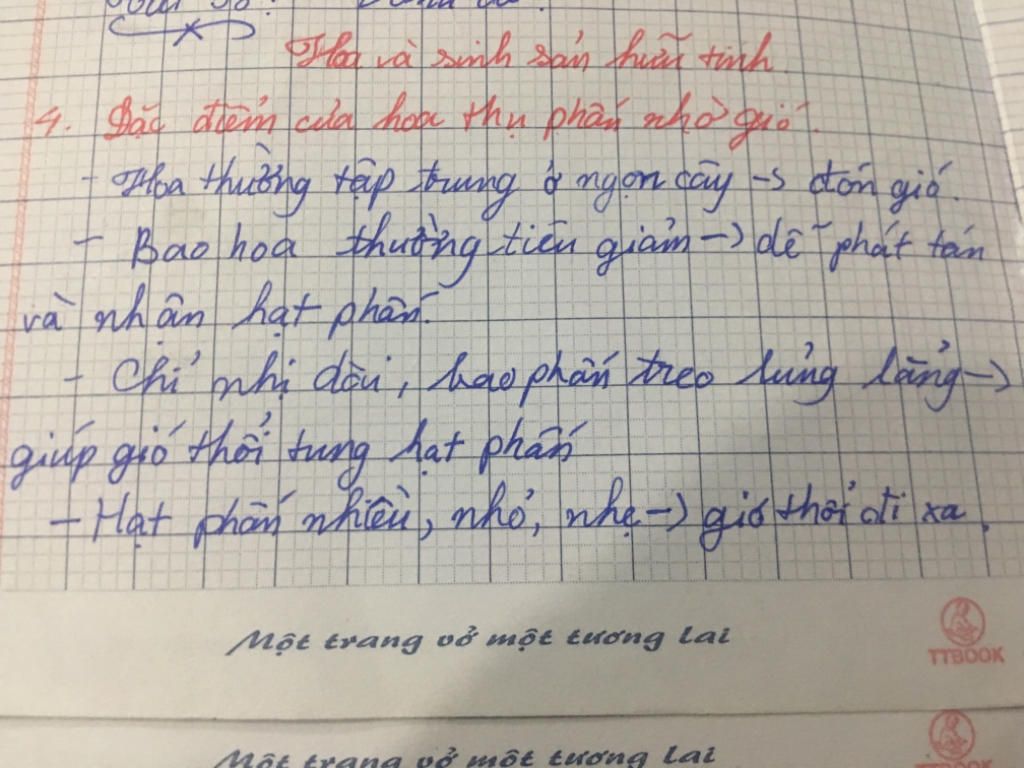 Hoa và sinh sản hữu tính
4. Đặc điểm của hoa thụ phấn nhờ gió.
- Hoa thường tập trung ở ngọn cây → đón gió.
- Bao hoa thường tiêu giảm → dễ phát tán
và nhận hạt phấn.
- Chỉ nhị dài, bao phấn treo lủng lẳng →
giúp gió thổi tung hạt phấn
- Hạt phấn nhiều, nhỏ, nhẹ → gió thổi đi xa.
Một trang vở một tương lai
TTBOOK
Một trang vở một tương lai